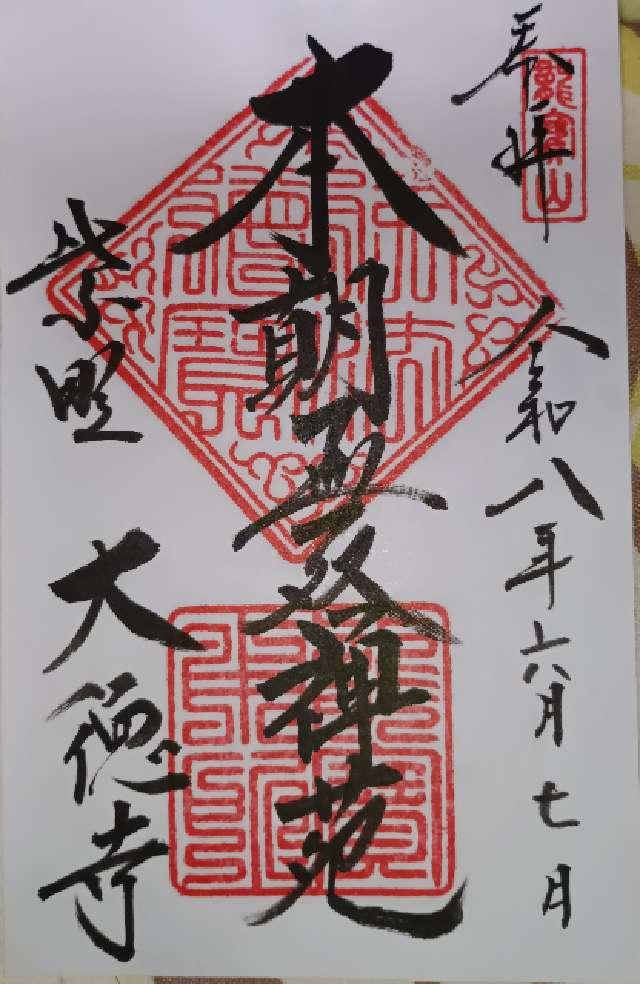 奉拝
龍寶山
令和八年六月七日
本朝無双禅苑
紫野
大徳寺